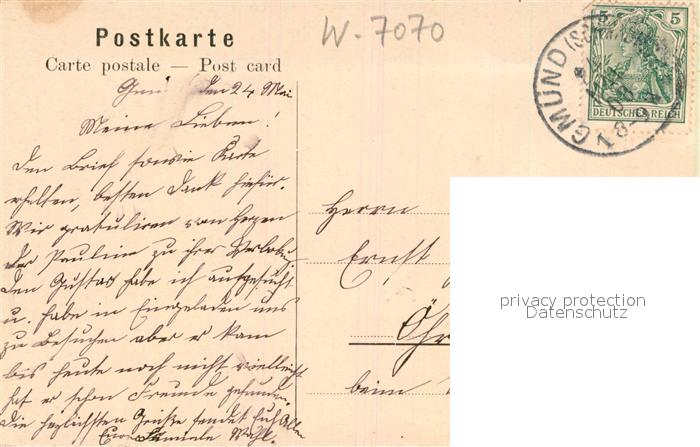 W-7070
Postkarte
Carte postale — Post card
5 5
DEUTSCHES REICH
GMÜND
den 24 Mai
Meine Lieben!
Den Brief sowie Karte
erhalten, besten Dank hiefür.
Wir gratuliren von Herzen
der Pauline zu ihrer Verlobung
den Gustav habe ich aufgesucht
u. habe in Eingeladen uns
zu Besuchen aber er kam
bis heute noch nicht vielleicht
hat er schon Freunde gefunden.
Die herzlichsten Grüße sendet Euch Allen
Eure Familie Wahl.
Herrn
Ernst
Öhr
beim
privacy protection
Datenschutz